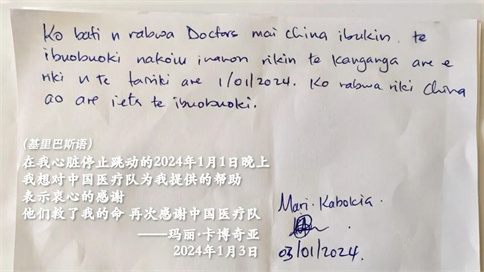 Ko bati n rabwa Doctors mai China ibukin te
ibuobuoki nakoiu inanon rikin te kanganga are e
riki n te tairiki are 1/01/2024. Ko rabwa riki China
ao are ieta te ibuobuoki.
(基里巴斯语)
在我心脏停止跳动的2024年1月1日晚上
我想对中国医疗队为我提供的帮助
表示衷心的感谢
他们救了我的命 再次感谢中国医疗队
——玛丽·卡博奇亚
2024年1月3日
Mari. Kabokia
03/01/2024.